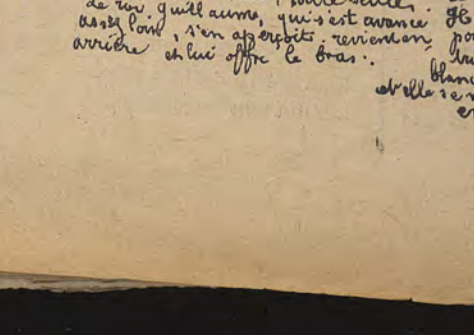 de roi guillaume, qui s'est avancé
assez loin, s'en aperçoit. revient en
arrière et lui offre le bras.
blanc
et elle se